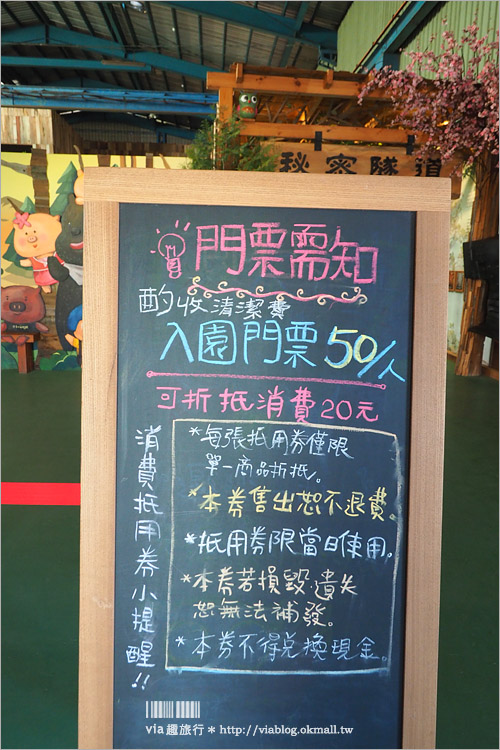 秘密隧道
門票需知
酌收清潔費
入園門票50/人
可折抵消費20元
消費抵用券小提醒!!
*每張抵用券僅限
單一商品折抵。
*本券售出恕不退費。
*抵用券限當日使用。
*本券若損毀、遺失
恕無法補發。
*本券不得兌換現金。
via趣旅行＊http://viablog.okmall.tw